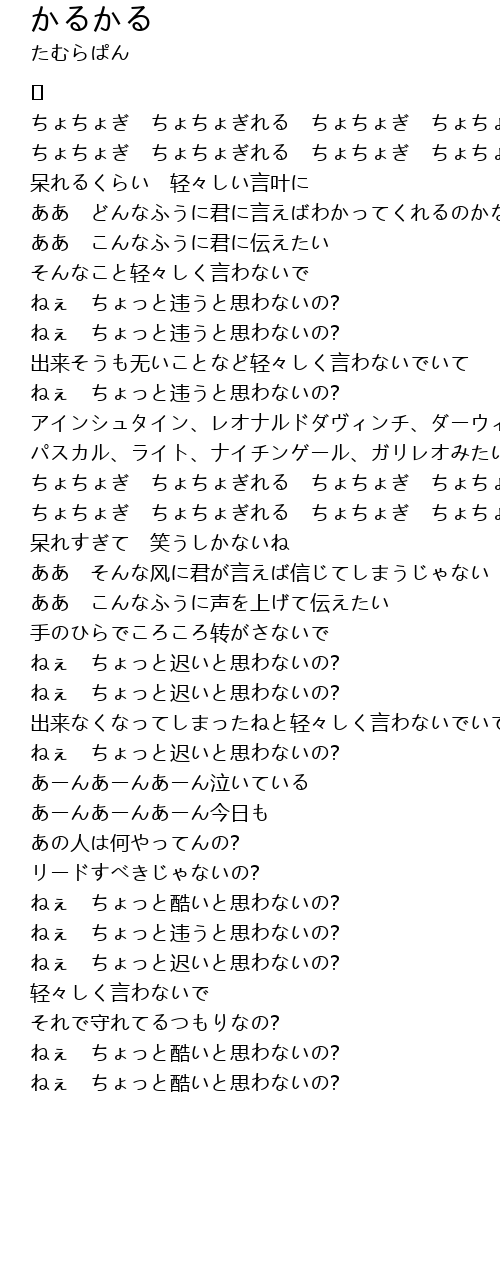 かるかる
たむらぱん
ちょちょぎ　ちょちょぎれる　ちょちょぎ　ちょちょ
ちょちょぎ　ちょちょぎれる　ちょちょぎ　ちょちょ
呆れるくらい　轻々しい言叶に
ああ　どんなふうに君に言えばわかってくれるのかな
ああ　こんなふうに君に伝えたい
そんなこと轻々しく言わないで
ねぇ　ちょっと违うと思わないの?
ねぇ　ちょっと违うと思わないの?
出来そうも无いことなど轻々しく言わないでいて
ねぇ　ちょっと违うと思わないの?
アインシュタイン、レオナルドダヴィンチ、ダーウィ
パスカル、ライト、ナイチンゲール、ガリレオみたい
ちょちょぎ　ちょちょぎれる　ちょちょぎ　ちょちょ
ちょちょぎ　ちょちょぎれる　ちょちょぎ　ちょちょ
呆れすぎて　笑うしかないね
ああ　そんな风に君が言えば信じてしまうじゃない
ああ　こんなふうに声を上げて伝えたい
手のひらでころころ转がさないで
ねぇ　ちょっと迟いと思わないの?
ねぇ　ちょっと迟いと思わないの?
出来なくなってしまったねと轻々しく言わないでいて
ねぇ　ちょっと迟いと思わないの?
あーんあーんあーん泣いている
あーんあーんあーん今日も
あの人は何やってんの?
リードすべきじゃないの?
ねぇ　ちょっと酷いと思わないの?
ねぇ　ちょっと违うと思わないの?
ねぇ　ちょっと迟いと思わないの?
轻々しく言わないで
それで守れてるつもりなの?
ねぇ　ちょっと酷いと思わないの?
ねぇ　ちょっと酷いと思わないの?